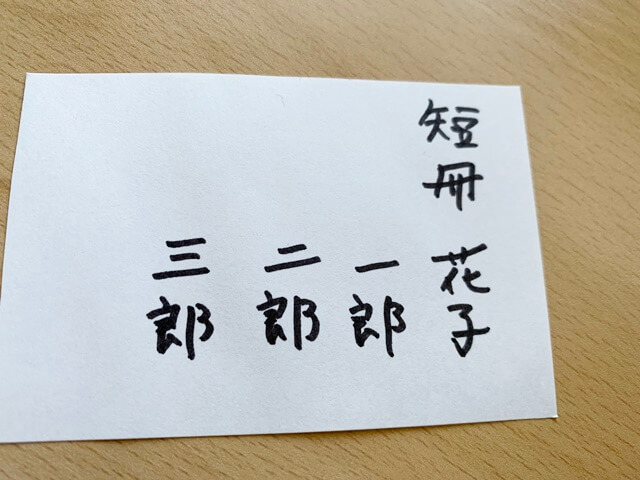 短冊 花子
一郎
二郎
三郎